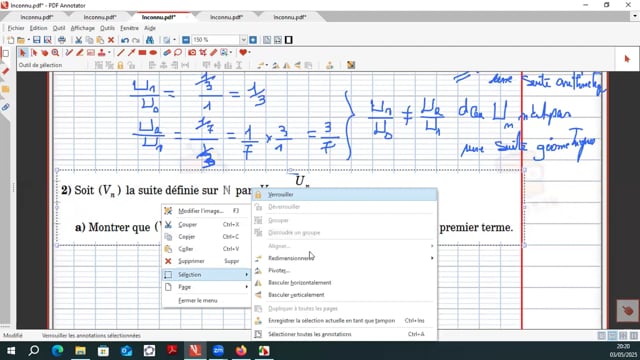 Inconnu.pdf* - PDF Annotator
Inconnu.pdf* Inconnu.pdf* Inconnu.pdf* Inconnu.pdf* Inconnu.pdf*
Fichier Edition Outil Affichage Outils Fenêtre Aide
150 %
Outil de sélection
U₁/U₀ = 1/3/1 = 1/3
U₂/U₁ = 1/7/1/3 = 1/7 × 3/1 = 3/7
U₁/U₀ ≠ U₂/U₁ donc Uₙ n'est pas
une suite géométrique
une suite arithmétique
2) Soit (Vₙ) la suite définie sur ℕ par Uₙ
a) Montrer que ( premier terme.
Modifier l'image... F3
Couper Ctrl+X
Copier Ctrl+C
Coller Ctrl+V
Supprimer Suppr
Sélection
Page
Fermer le menu
Verrouiller
Déverrouiller
Grouper
Dissoudre un groupe
Aligner...
Redimensionner
Pivoter...
Basculer horizontalement
Basculer verticalement
Dupliquer à toutes les pages
Enregistrer la sélection actuelle en tant que tampon Ctrl+Ins
Sélectionner toutes les annotations Ctrl+A
Verrouiller les annotations sélectionnées
20:20
03/05/2025